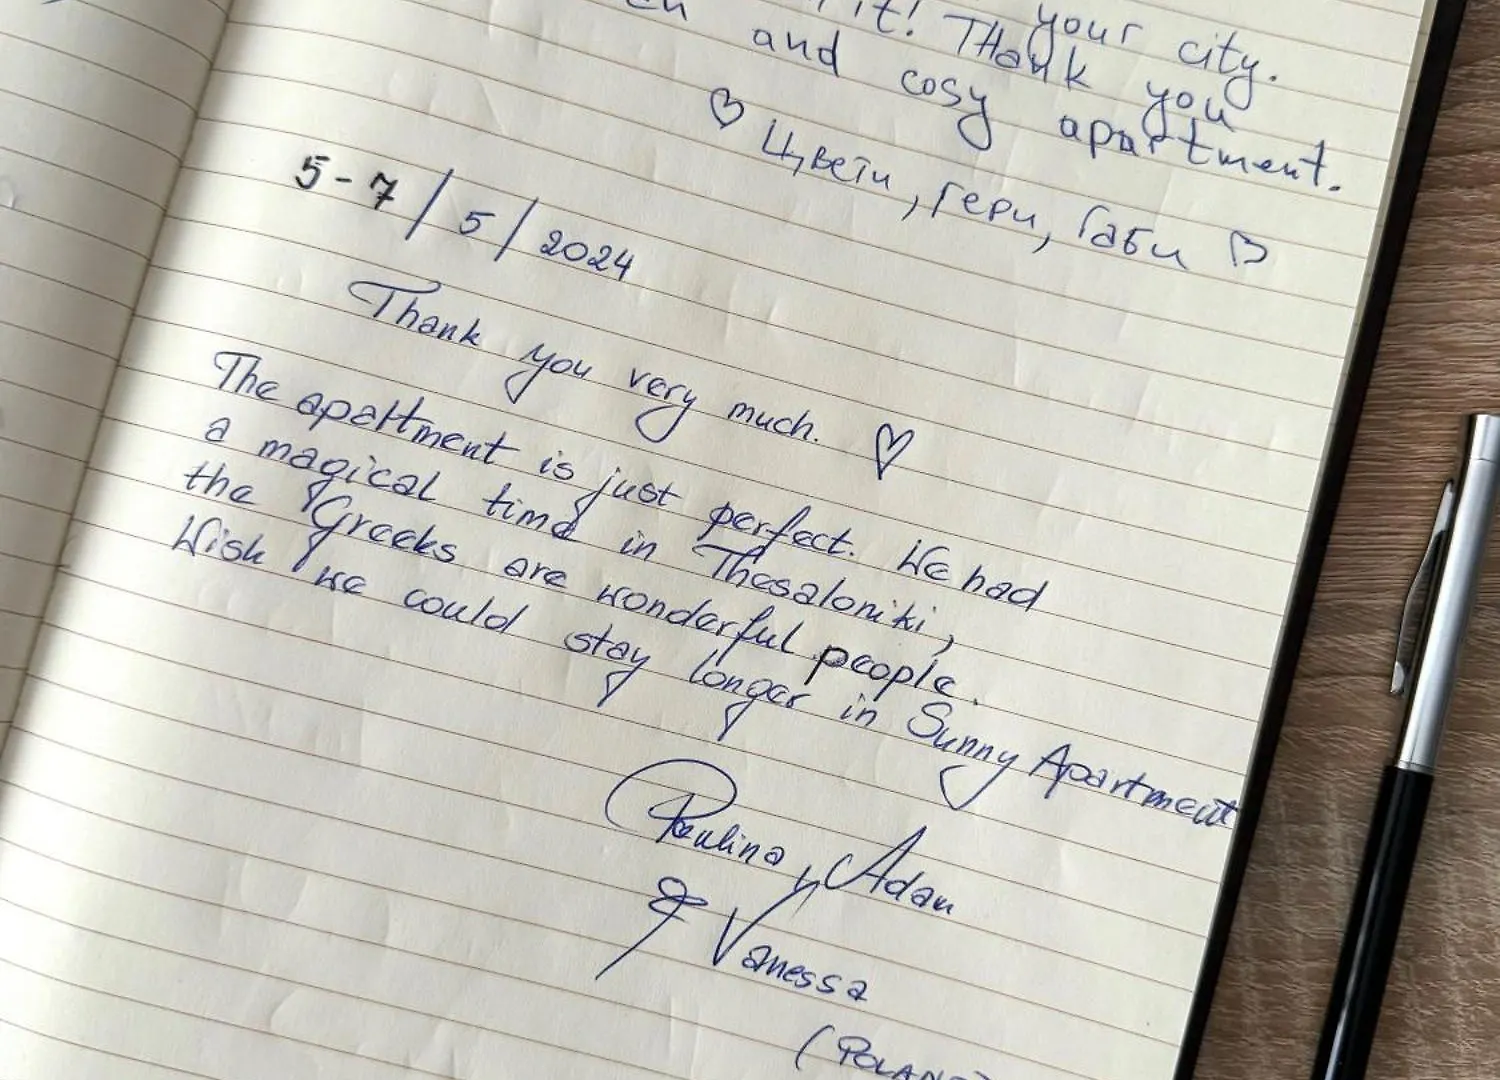 it! your city.
THank you
and cosy apartment.
♡ Цвети, Гери, Габи ♡
5-7/5/2024
Thank you very much. ♡
The apartment is just perfect. We had
a magical time in Thesaloniki,
the Greeks are wonderful people.
Wish we could stay longer in Sunny Apartment
Paulina, Adam
& Vanessa
(POLAND)